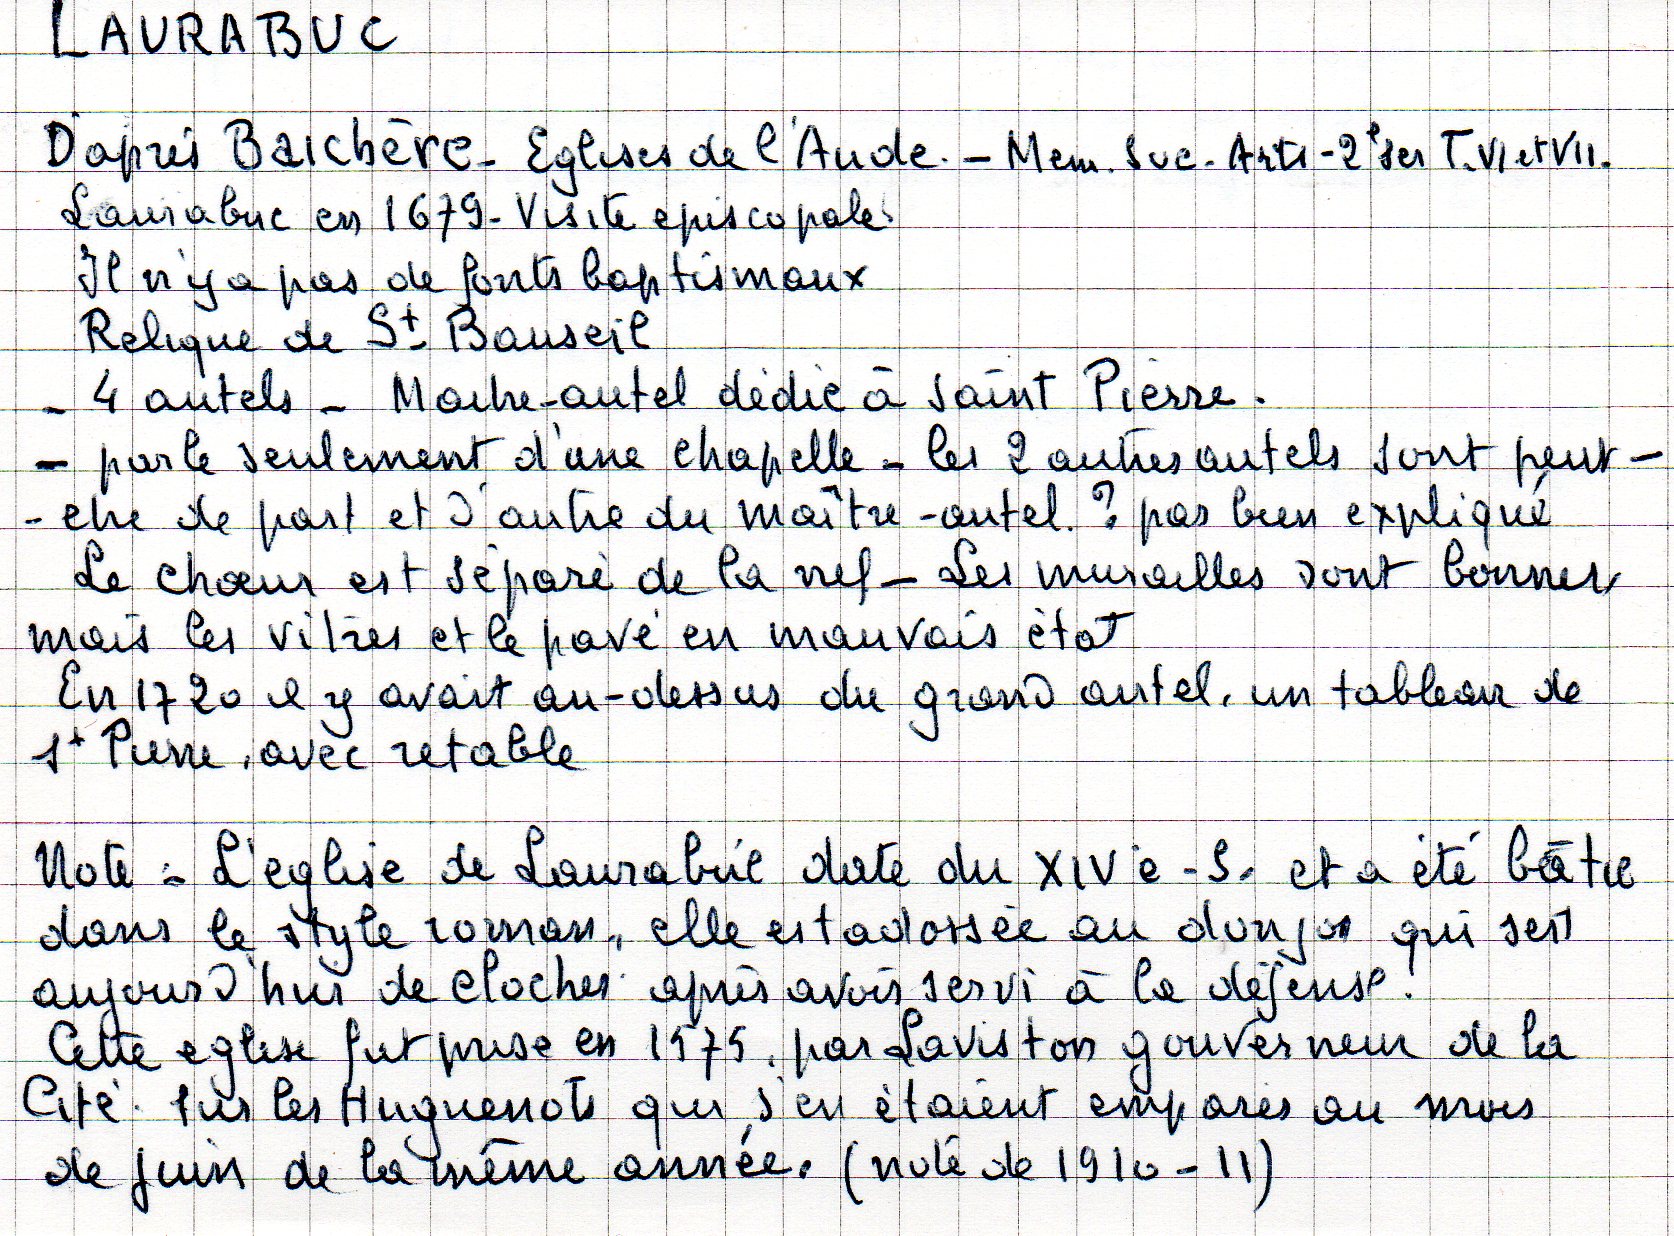 LAURABUC
D'après Baichère - Eglises de l'Aude. - Mem. Soc. Arts - 2e ser T. VI et VII.
Laurabuc en 1679 - Visite episcopale
Il n'y a pas de fonts baptismaux
Relique de St Bauseil
- 4 autels - Maitre-autel dédié à saint Pierre.
- parle seulement d'une chapelle - les 2 autres autels sont peut-
-etre de part et d'autre du maître-autel. ? pas bien expliqué
Le chœur est séparé de la nef - Les murailles sont bonnes,
mais les vitres et le pavé en mauvais état
En 1720 il y avait au-dessus du grand autel, un tableau de
St Pierre, avec retable
Note = L'eglise de Laurabuc date du XIVe - S. et a été bâtie
dans le style roman, elle est adossée au donjon qui sert
aujourd'hui de clocher après avoir servi à la défense.
Cette eglise fut prise en 1575, par Laviston gouverneur de la
Cité. sur les Huguenots qui s'en étaient emparés au mois
de juin de la même année. (note de 1910-11)